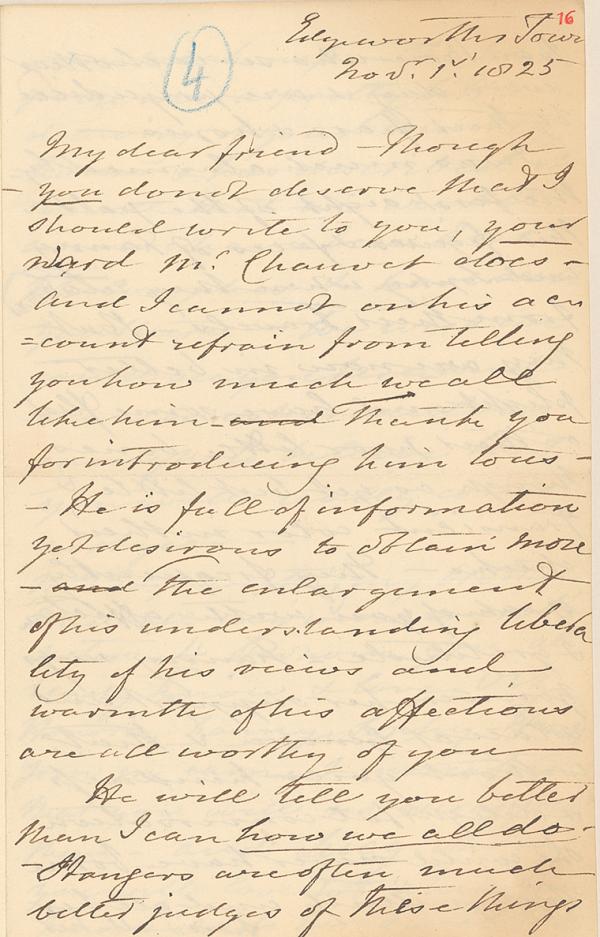 16
4
Edgeworths Town
Novr. 1st. 1825
My dear friend - Though
- you do not deserve that I
should write to you, your
ward Mr. Chauvet does -
and I cannot on his ac
=count refrain from telling
you how much we all
like him - and Thank you
for introducing him to us -
- He is full of information
yet desirous to obtain more
- and The enlargement
of his understanding libera
lity of his views and
warmth of his affections
are all worthy of you
He will tell you better
than I can how we all do -
- Stangers are often much
better judges of these things